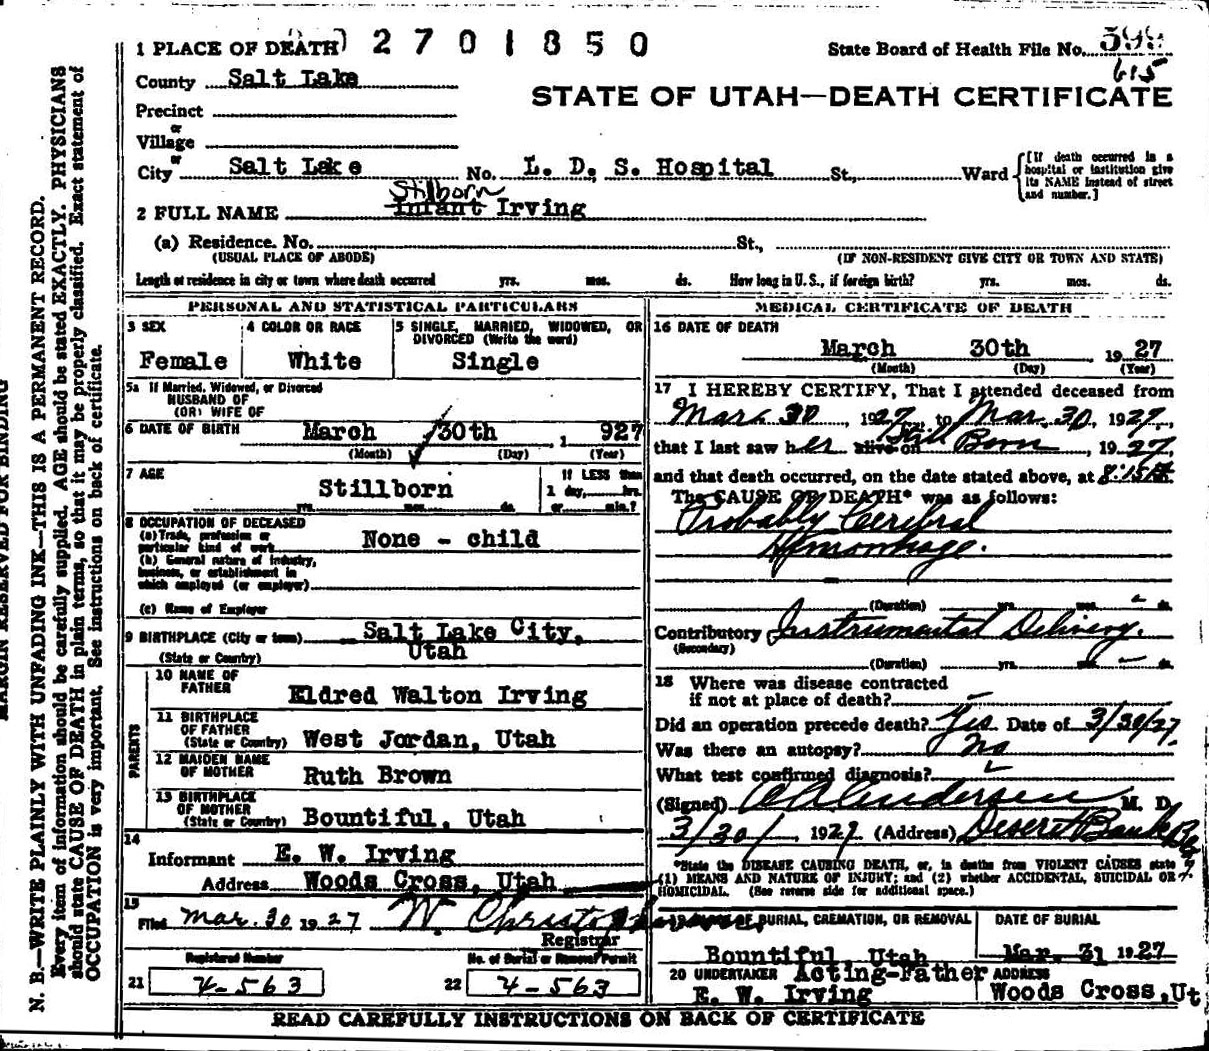 1 PLACE OF DEATH 2701850
State Board of Health File No.
615
County Salt Lake
STATE OF UTAH—DEATH CERTIFICATE
Precinct
or
Village
or
City Salt Lake No. L. D. S. Hospital St., Ward
[If death occurred in a hospital or institution give its NAME instead of street and number.]
Stilborn
2 FULL NAME Infant Irving
(a) Residence. No. St.,
(USUAL PLACE OF ABODE) (IF NON-RESIDENT GIVE CITY OR TOWN AND STATE)
Length of residence in city or town where death occurred yrs. mos. ds. How long in U. S., if foreign birth? yrs. mos. ds.
PERSONAL AND STATISTICAL PARTICULARS
3 SEX 4 COLOR OR RACE 5 SINGLE, MARRIED, WIDOWED, OR
DIVORCED (Write the word)
Female White Single
5a If Married, Widowed, or Divorced
HUSBAND OF
(OR) WIFE OF
6 DATE OF BIRTH March 30th, 1 927
(Month) (Day) (Year)
7 AGE If LESS than
Stillborn 1 day, hrs.
yrs. mos. ds. or min.?
8 OCCUPATION OF DECEASED
(a) Trade, profession or
particular kind of work None - child
(b) General nature of industry,
business, or establishment in
which employed (or employer)
(c) Name of Employer
9 BIRTHPLACE (City or town) Salt Lake City,
(State or Country) Utah
PARENTS
10 NAME OF
FATHER Eldred Walton Irving
11 BIRTHPLACE
OF FATHER
(State or Country) West Jordan, Utah
12 MAIDEN NAME
OF MOTHER Ruth Brown
13 BIRTHPLACE
OF MOTHER
(State or Country) Bountiful, Utah
14
Informant E. W. Irving
Address Woods Cross, Utah
15
Filed Mar. 30 1927 W. Christo
Registrar
Registered Number No. of Burial or Removal Permit
21 4-563 22 4-563
MEDICAL CERTIFICATE OF DEATH
16 DATE OF DEATH
March 30th, 1927
(Month) (Day) (Year)
17 I HEREBY CERTIFY, That I attended deceased from
Mar. 30, 1927, to Mar. 30, 1927,
that I last saw her alive on Still Born, 1927,
and that death occurred, on the date stated above, at 8:15
The CAUSE OF DEATH* was as follows:
Probably Cerebral
Hemorrhage.
(Duration) yrs. mos. ds.
Contributory Instrumental Delivery.
(Secondary)
(Duration) yrs. ds.
18 Where was disease contracted
if not at place of death?
Did an operation precede death? Yes Date of 3/30/27
Was there an autopsy? No
What test confirmed diagnosis?
(Signed) M. D.
3/30/, 1927 (Address) Deseret Bank
*State the DISEASE CAUSING DEATH, or, in deaths from VIOLENT CAUSES state
(1) MEANS AND NATURE OF INJURY; and (2) whether ACCIDENTAL, SUICIDAL OR
HOMICIDAL. (See reverse side for additional space.)
OF BURIAL, CREMATION, OR REMOVAL DATE OF BURIAL
Bountiful, Utah Mar. 31 1927
20 UNDERTAKER Acting-Father ADDRESS
E. W. Irving Woods Cross, Ut
READ CAREFULLY INSTRUCTIONS ON BACK OF CERTIFICATE
MARGIN RESERVED FOR BINDING
N. B.—WRITE PLAINLY WITH UNFADING INK—THIS IS A PERMANENT RECORD.
Every item of information should be carefully supplied. AGE should be stated EXACTLY. PHYSICIANS
should state CAUSE OF DEATH in plain terms, so that it may be properly classified. Exact statement of
OCCUPATION is very important. See instructions on back of certificate.